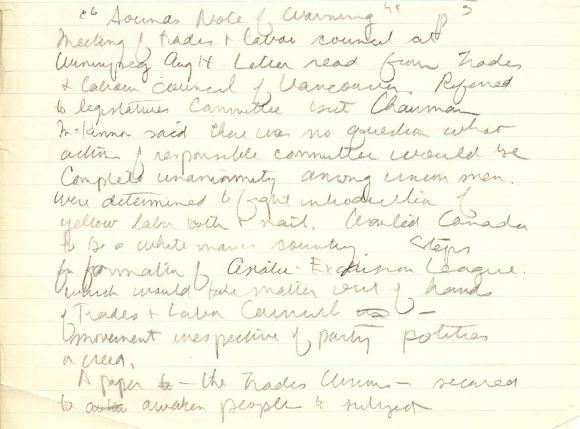 "Sounds Note of Warning" p 5
Meeting of Trades & Labor council at
Winnipeg Aug 14. Letter read from Trades
& Labour Council of Vancouver. Referred
to legislative Committee but Chairman
McKinnon said there was no question what
action of responsible committee would be
Complete unanimity among union men.
Were determined to fight introduction of
yellow labor tooth & nail. Wanted Canada
to be a white man's country. Steps
for formation of Asiatic Exclusion League.
which would take matter out of hands
of Trades + Labor Council —
movement irrespective of party politics
or creed.
A paper — the Trades Union — secured
to awaken people to subject